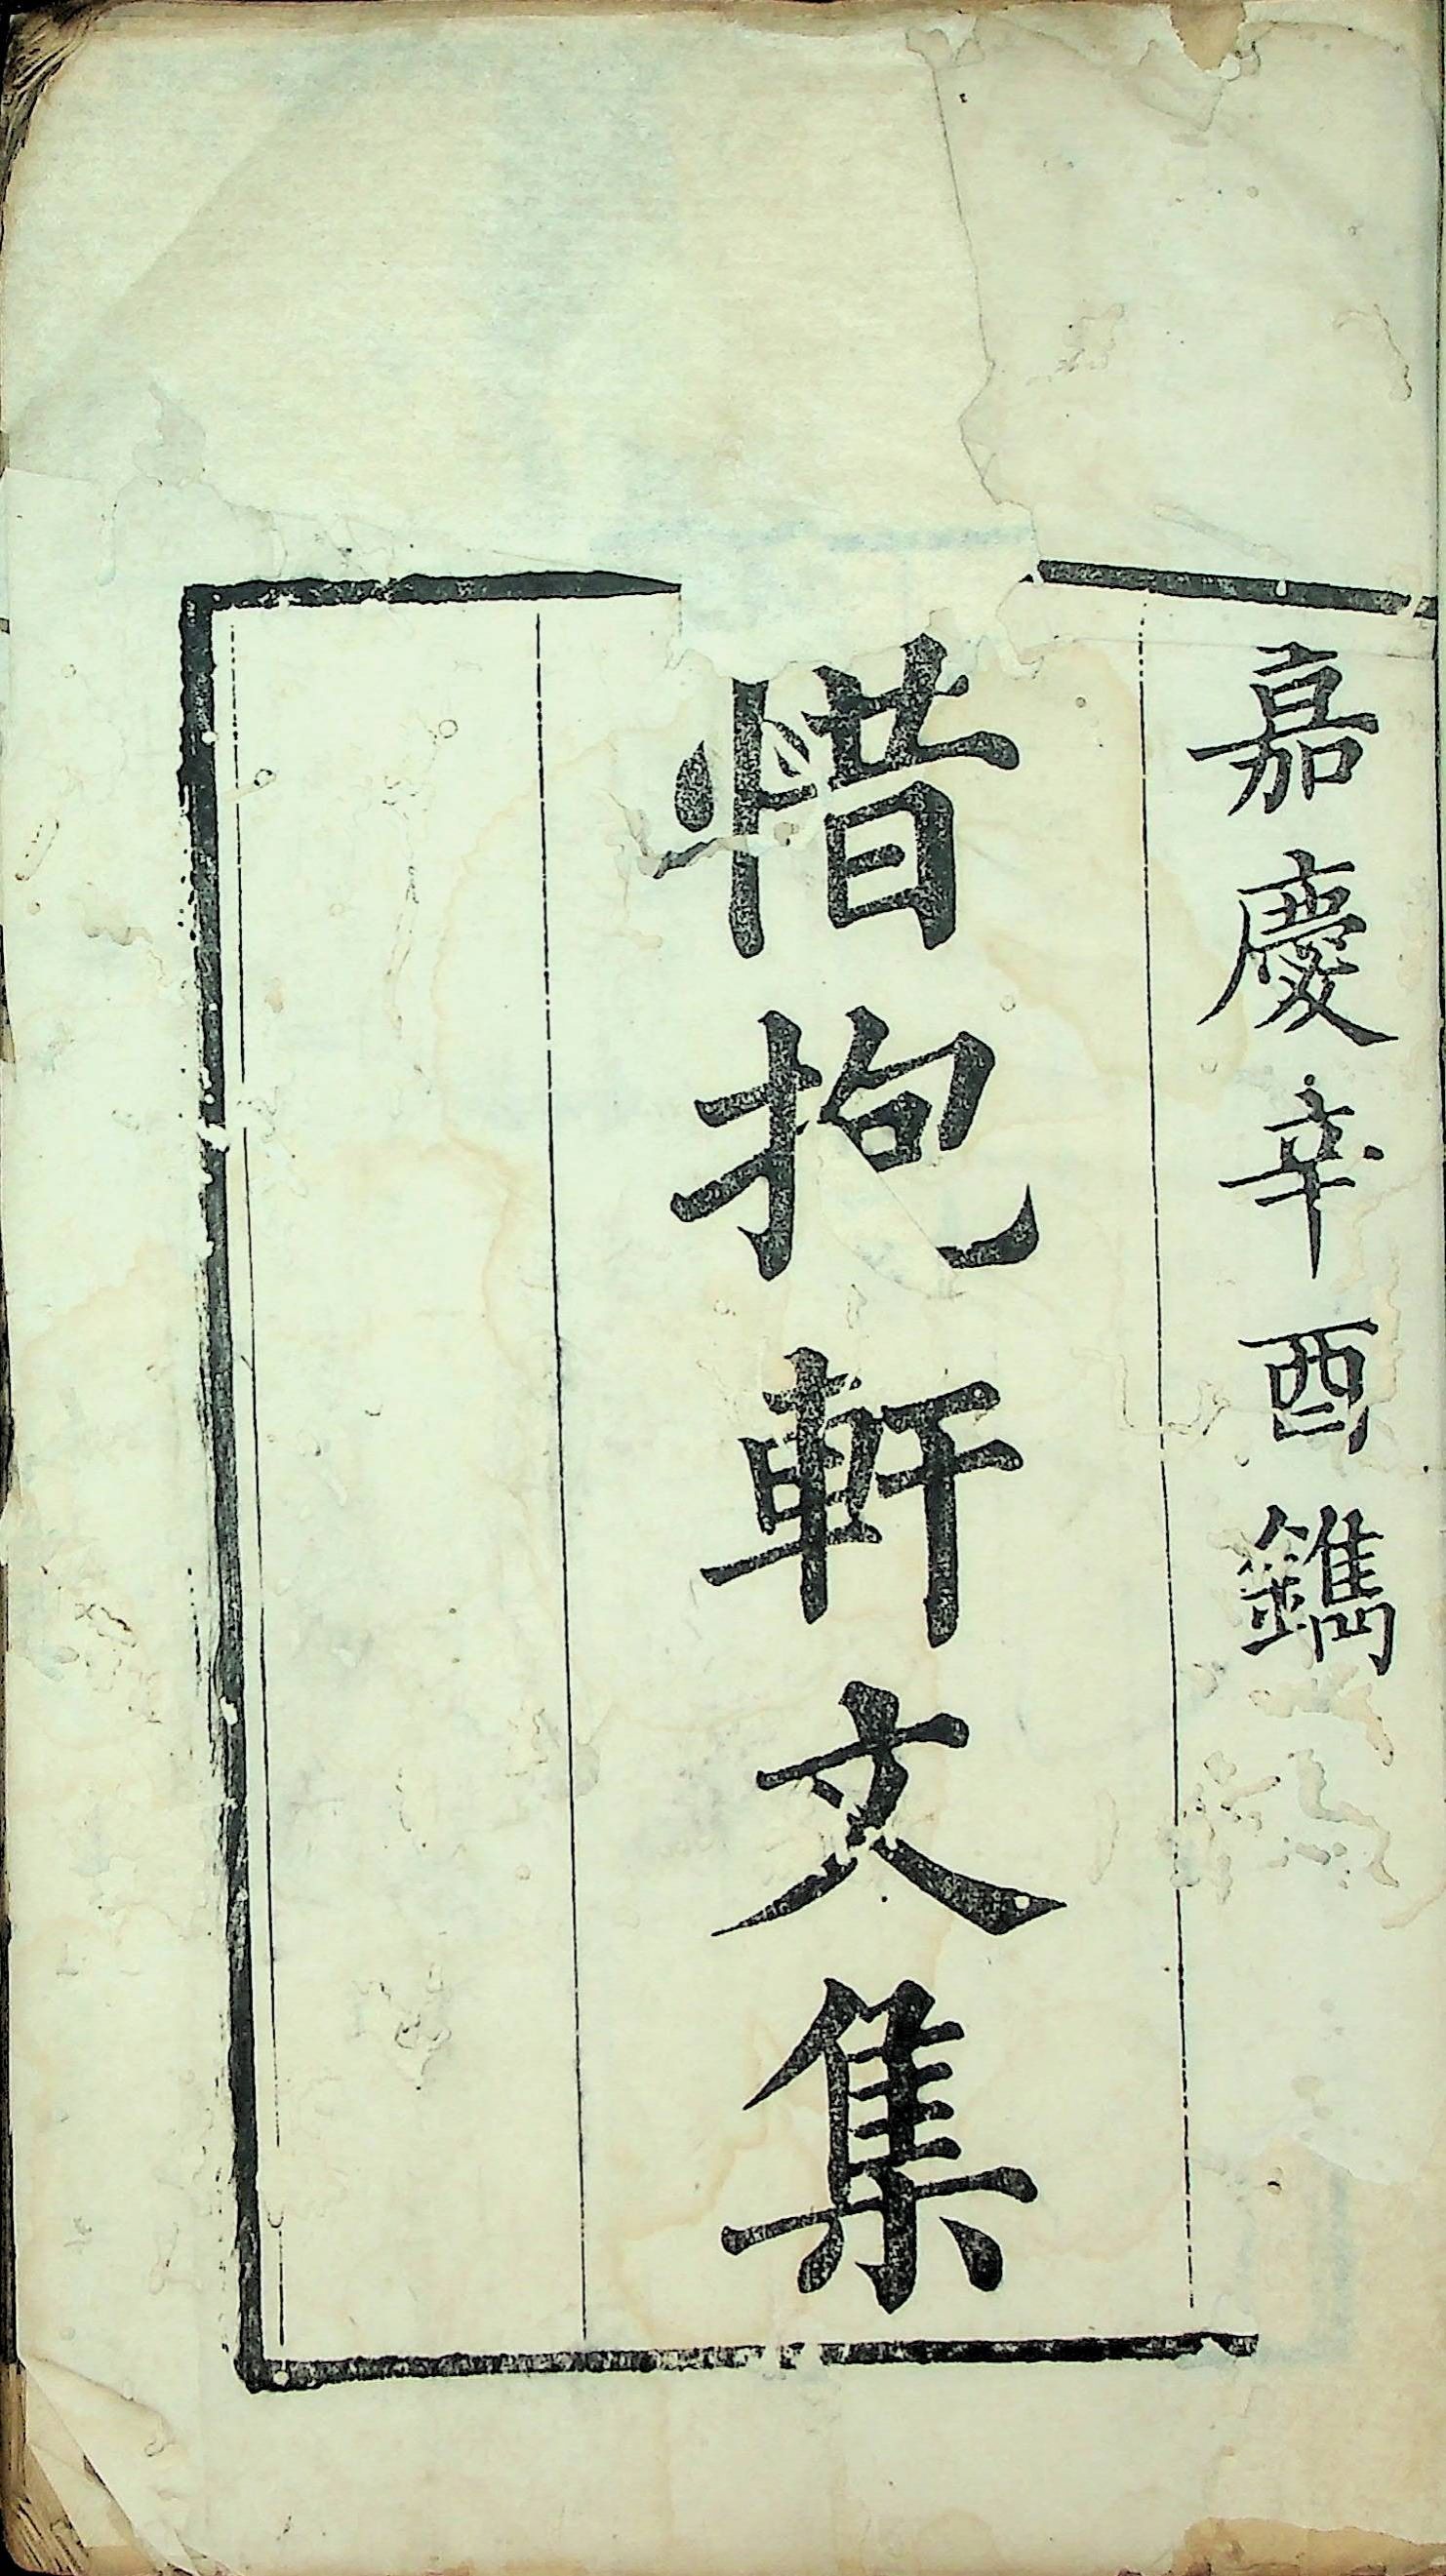 嘉慶辛酉鐫
惜抱軒文集